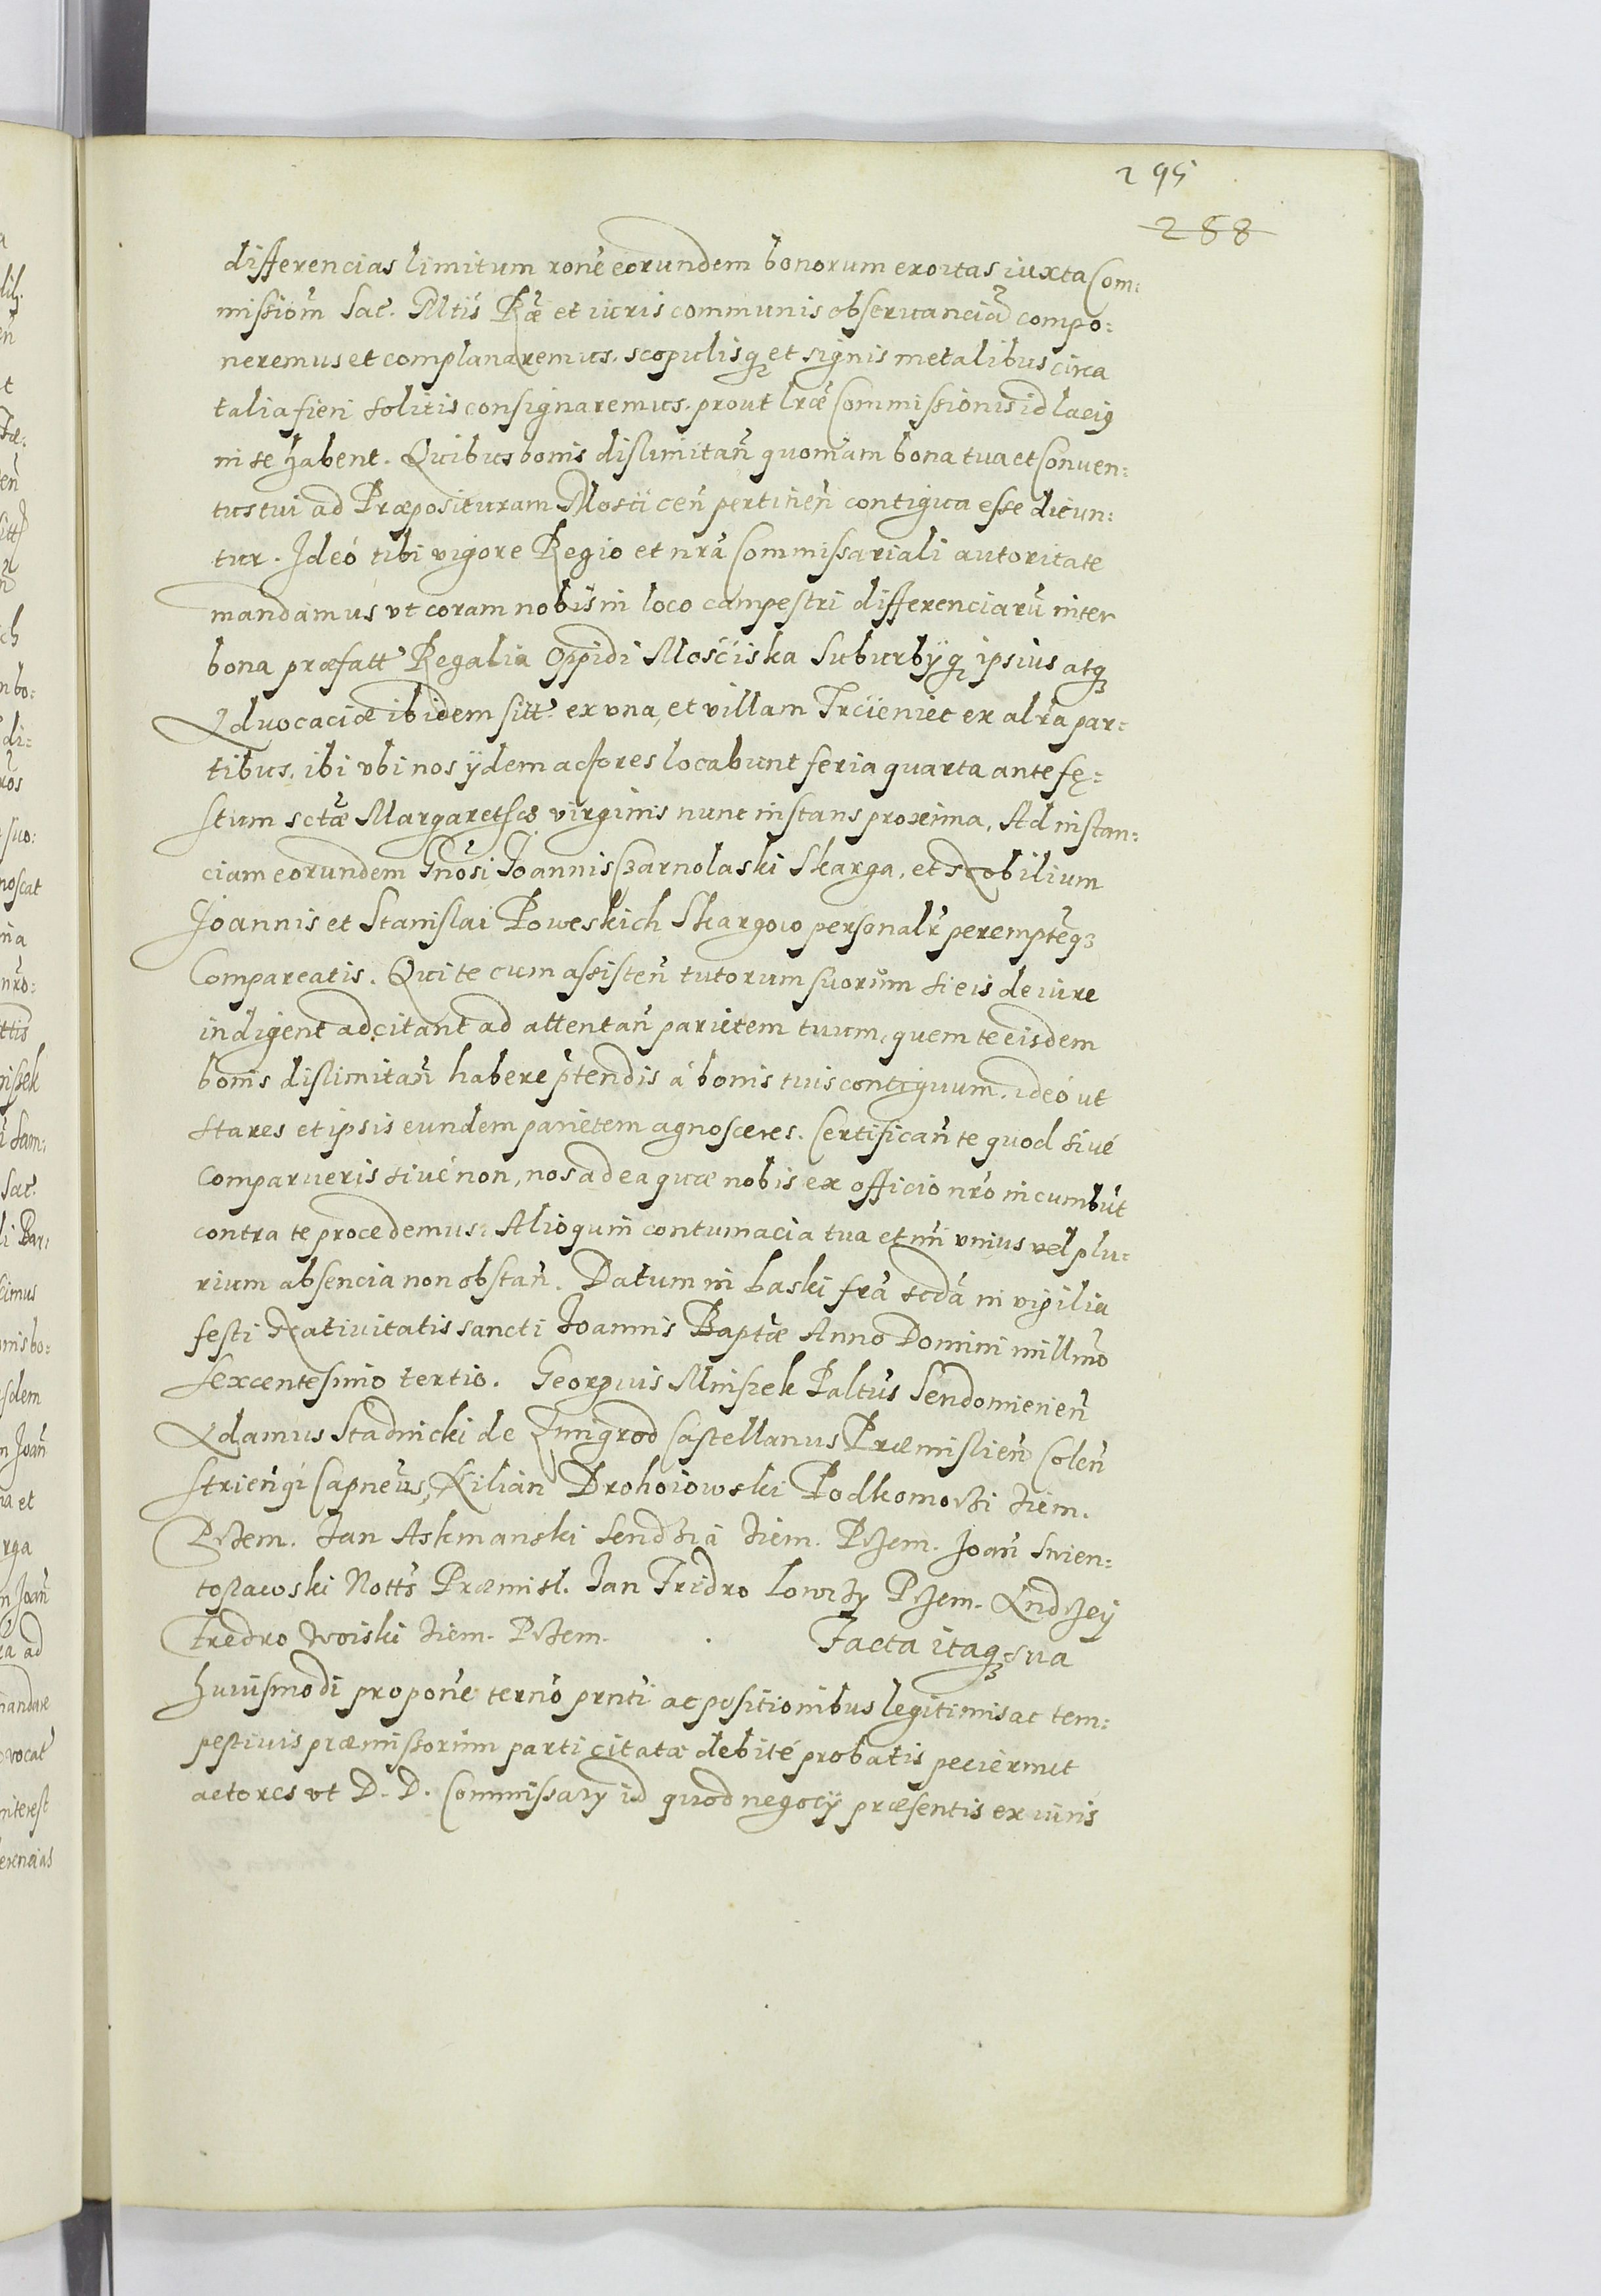 295
288
differencias limitum rone eorundem bonorum exortas iuxta Com:
missiom Sac. Mtis Ræ et iuris communis obseruancia compo:
neremus et complanaremus. scopulisq et signis metalibus circa
talia fieri solitis consignaremus. prout lræ Commissionis id lacius
in se habent. Quibus bonis dislimitan quoniam bona tua et Conuen:
tus tui ad Præposituram Moscicen pertinen contigua esse dicun:
tur. Ideó tibi vigore Regio et nra Commissariali autoritate
mandamus vt coram nobis in loco campestri differenciaru inter
bona præfatt Regalia Oppidi Mościska Suburbÿq ipsius atq
Aduocaciæ ibidem sitt. ex vna, et villam Trcieniec ex alra par:
tibus. ibi vbi nos ÿdem actores locabunt feria quarta ante fe:
stum sctæ Margarethæ virginis nunc instans proxima, Ad instan:
ciam eorundem Gnosi Joannis Czarnolaski Skarga, et Nobilium
Joannis et Stanislai Poweskich Skargow personalr perempteq
Compareatis. Qui te cum assisten tutorum suorum si eis de iure
indigent adcitant ad attentan parietem tuum, quem te eisdem
bonis dislimitan habere ptendis á bonis tuis contiguum. ideó ut
stares et ipsis eundem parietem agnosceres. Certifican te quod siué
Comparueris siué non, nos ad ea quæ nobis ex officio nro incumbut
contra te procedemus: Alioquin contumacia tua et nri vnius vel plu:
rium absencia non obstan. Datum in Laski fra scda in vigilia
festi Natiuitatis sancti Joannis Baptæ Anno Domini millmo
Sexcentesimo tertio. Georgius Mniszek Paltus Sendomirien
Adamus Stadnicki de Zmigrod Castellanus Præmislien Colen
Striengi Capneus, Kilian Drohoiowski Podkomorzi Ziem.
Przem. Jan Askmanski Sendzia Ziem. Przem. Joan Swien:
toslawski Notts Præmisl. Jan Fridro Lowczy Przem. Andrzey
Fredro Woiski Ziem. Przem. Facta itaq sua
huiusmodi propone terno prnti ac positionibus legitimis ac tem:
pestiuis præmissorum parti citatæ debité probatis pecierunt
actores vt D. D. Commissarÿ id quod negocÿ præsentis ex iuris